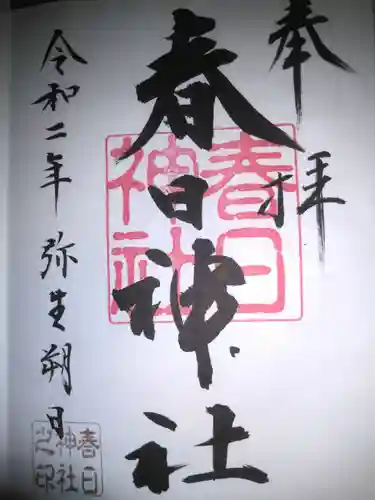 奉拝
春日神社
春日神社
令和二年弥生朔日
春日神社之印